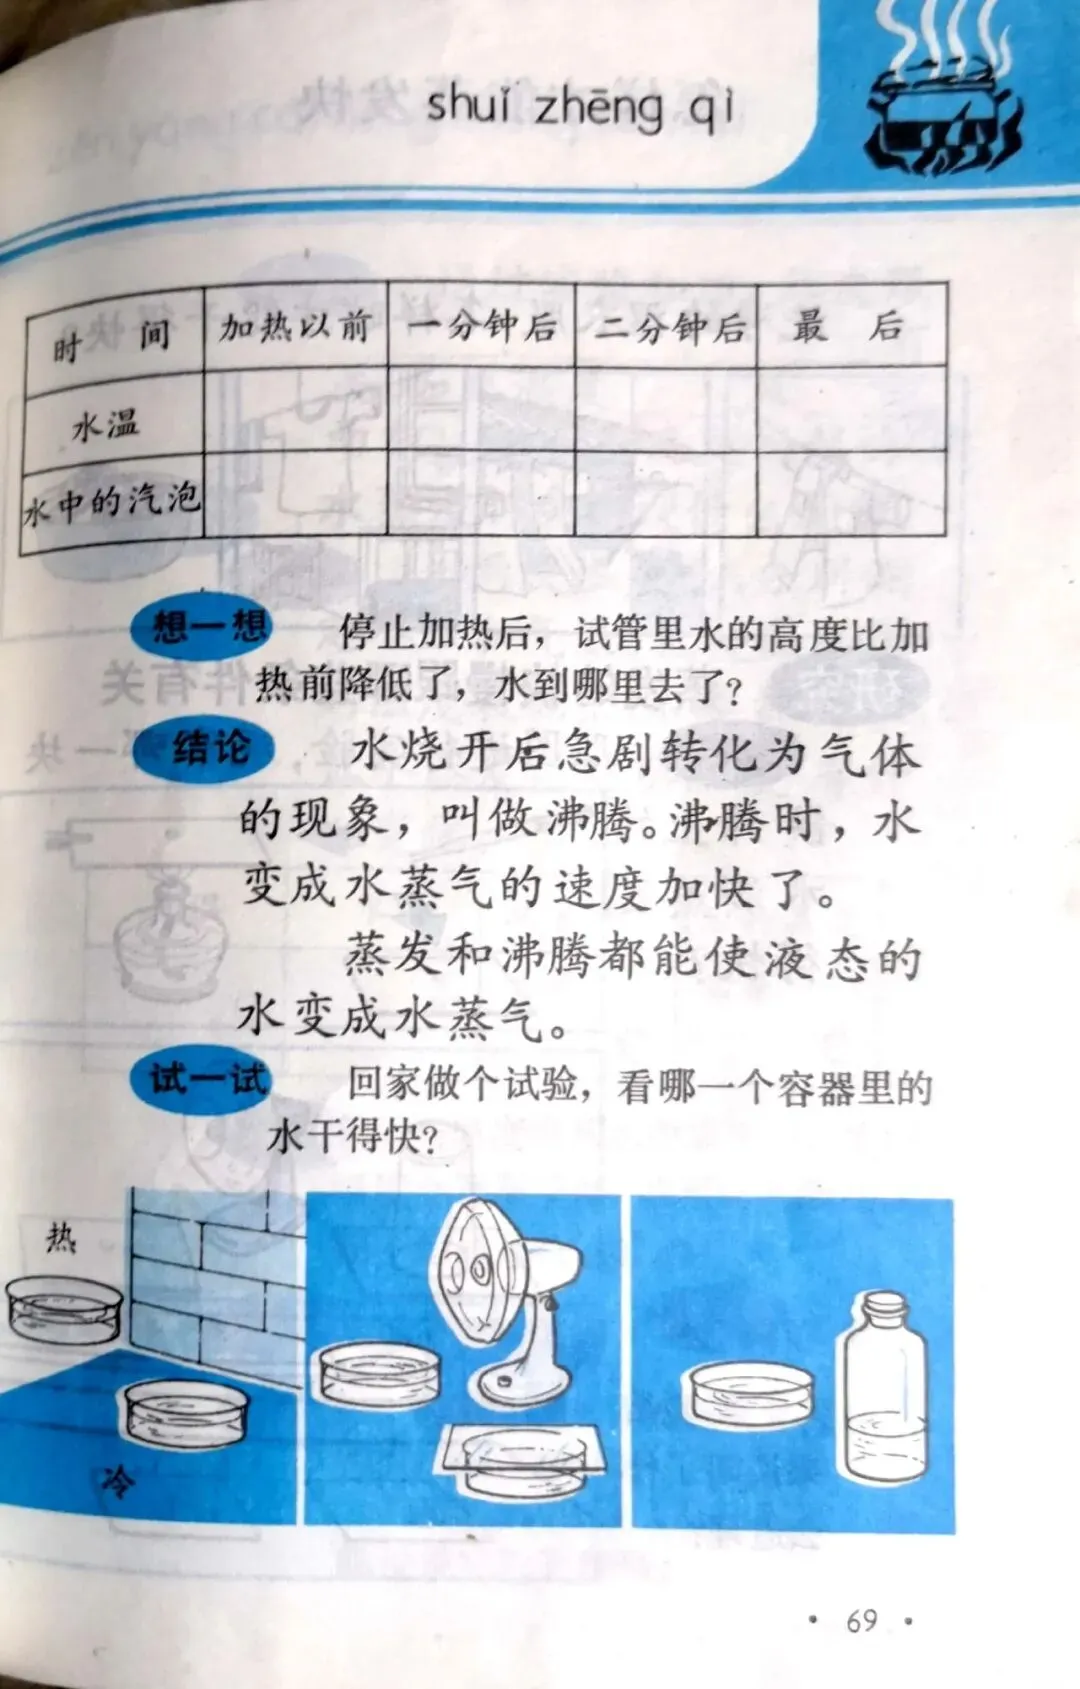 shuǐ zhēng qì
时 间 加热以前 一分钟后 二分钟后 最 后
水温
水中的汽泡
想一想 停止加热后，试管里水的高度比加
热前降低了，水到哪里去了？
结论 水烧开后急剧转化为气体
的现象，叫做沸腾。沸腾时，水
变成水蒸气的速度加快了。
蒸发和沸腾都能使液态的
水变成水蒸气。
试一试 回家做个试验，看哪一个容器里的
水干得快？
热
冷
• 69 •